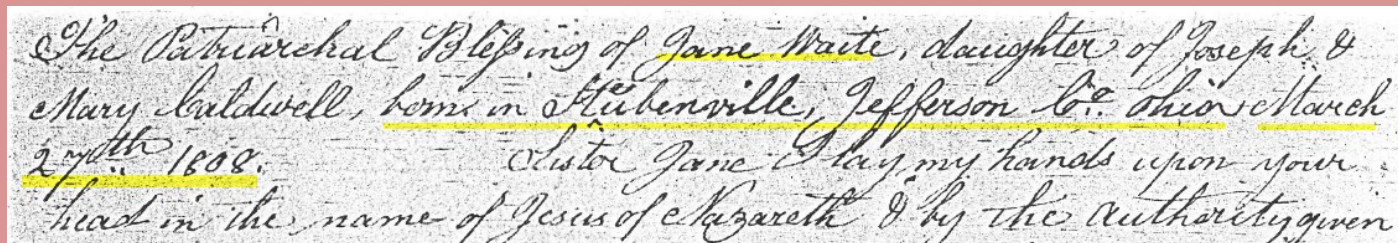 The Patriarchal Blessing of Jane Waite, daughter of Joseph &
Mary Caldwell, born in Stubenville, Jefferson Co. Ohio March
27th 1808. Sister Jane I lay my hands upon your
head in the name of Jesus of Nazareth & by the authority given